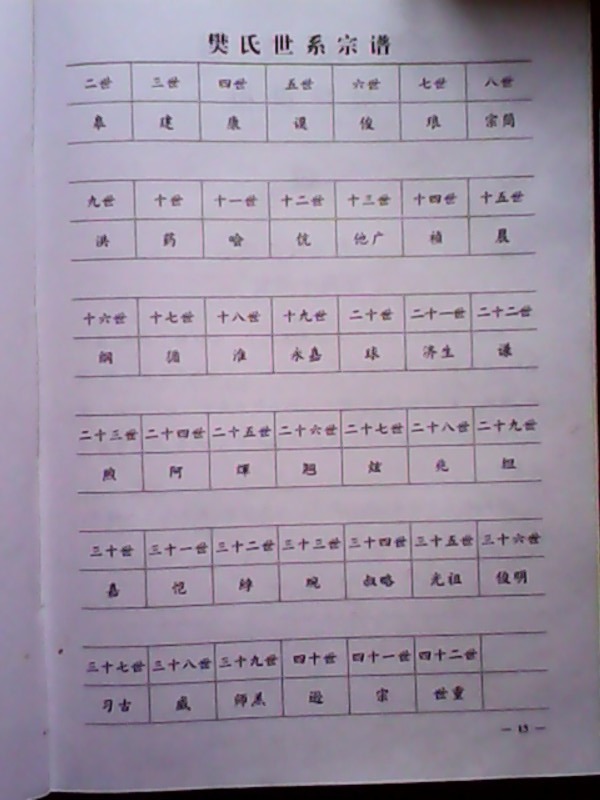 樊氏世系宗谱
二世 三世 四世 五世 六世 七世 八世
皋 建 康 谡 俊 琅 宗简
九世 十世 十一世 十二世 十三世 十四世 十五世
洪 药 哙 伉 他广 祯 晨
十六世 十七世 十八世 十九世 二十世 二十一世 二十二世
纲 淮 永嘉 球 济生 谦
二十三世 二十四世 二十五世 二十六世 二十七世 二十八世 二十九世
煦 阿 翘 炫
三十世 三十一世 三十二世 三十三世 三十四世 三十五世 三十六世
嘉 恺 绰 琬 叔略 光祖 俊明
三十七世 三十八世 三十九世 四十世 四十一世 四十二世
习古 威 逊 宗 世重
— 15 —